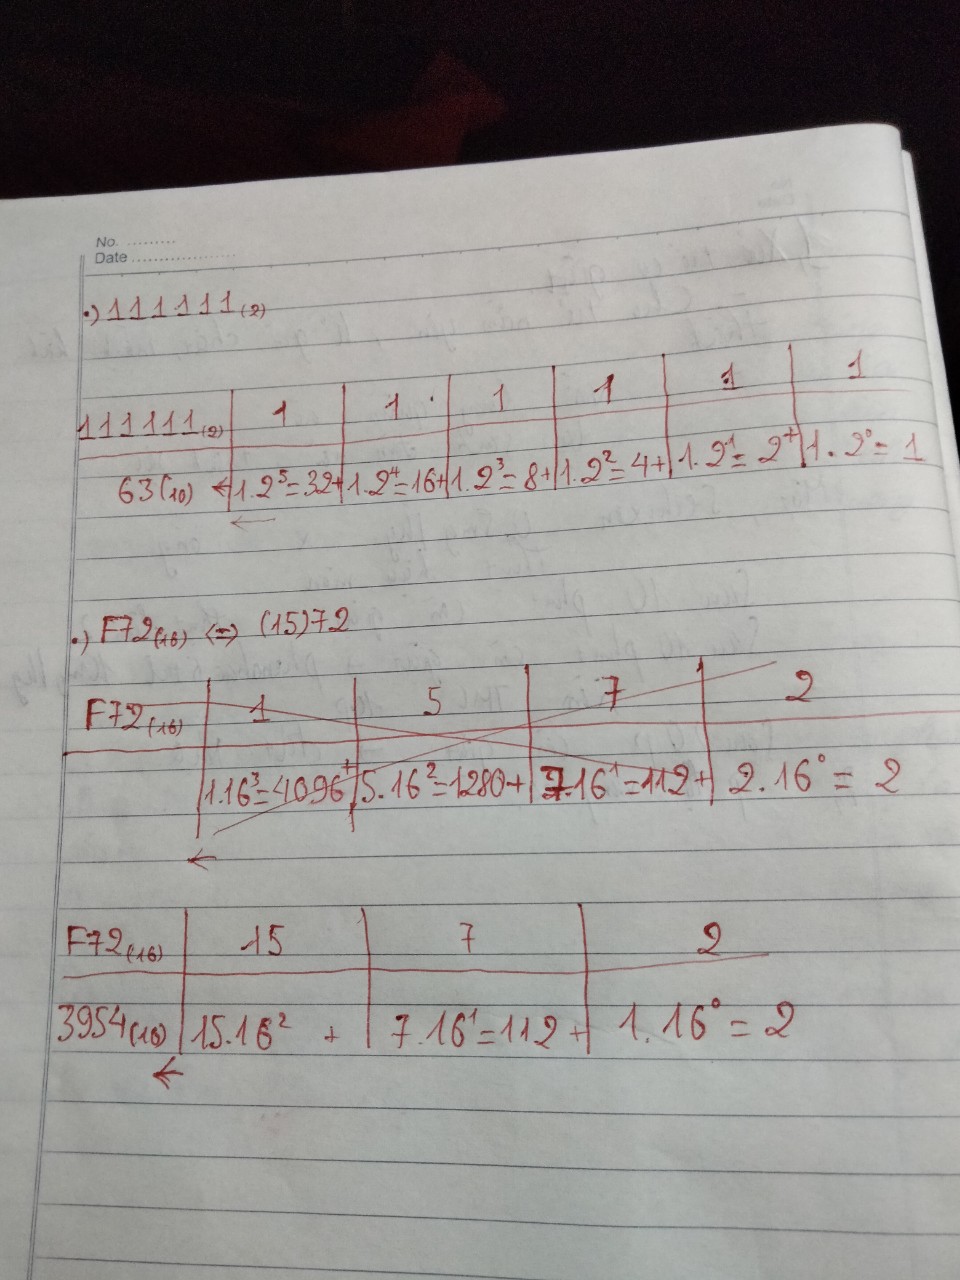 No. ..........
Date ....................
•) 111111(2)
111111(2) 1 1 1 1 1 1
63(10) ← 1.2⁵=32+ 1.2⁴=16+ 1.2³=8+ 1.2²=4+ 1.2¹=2+ 1.2⁰=1
←
•) F72(16) <=> (15)72
F72(16) 1 5 7 2
1.16³=4096+ 5.16²=1280+ 7.16¹=112+ 2.16⁰=2
←
F72(16) 15 7 2
3954(10) 15.16² + 7.16¹=112+ 1.16⁰=2
←